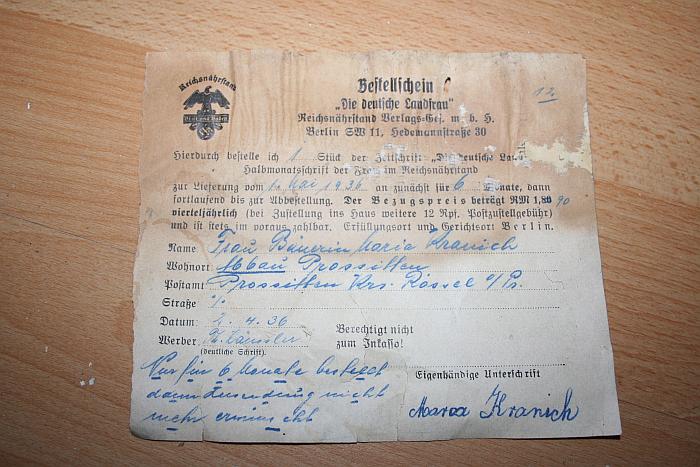 Reichsnährstand
Blut und Boden
Bestellschein
12
„Die deutsche Landfrau"
Reichsnährstand Verlags-Ges. m. b. H.
Berlin SW 11, Hedemannstraße 30
Hierdurch bestelle ich 1 Stück der Zeitschrift „Die deutsche Land
Halbmonatsschrift der Frau im Reichsnährstand
zur Lieferung vom 1. Mai 1936 an zunächst für 6 Monate, dann
fortlaufend bis zur Abbestellung. Der Bezugspreis beträgt RM 1,80 90
vierteljährlich (bei Zustellung ins Haus weitere 12 Rpf. Postzustellgebühr)
und ist stets im voraus zahlbar. Erfüllungsort und Gerichtsort Berlin.
Name Frau Bäuerin Maria Kranich
Wohnort Abbau Prossitten
Postamt Prossitten Krs. Rössel o/Pr.
Straße %
Datum: 2. 4. 36
Berechtigt nicht
zum Inkasso!
Werber
(deutliche Schrift)
Nur für 6 Monate bestellt
dann Zusendung nicht
mehr erwünscht
Eigenhändige Unterschrift
Maria Kranich